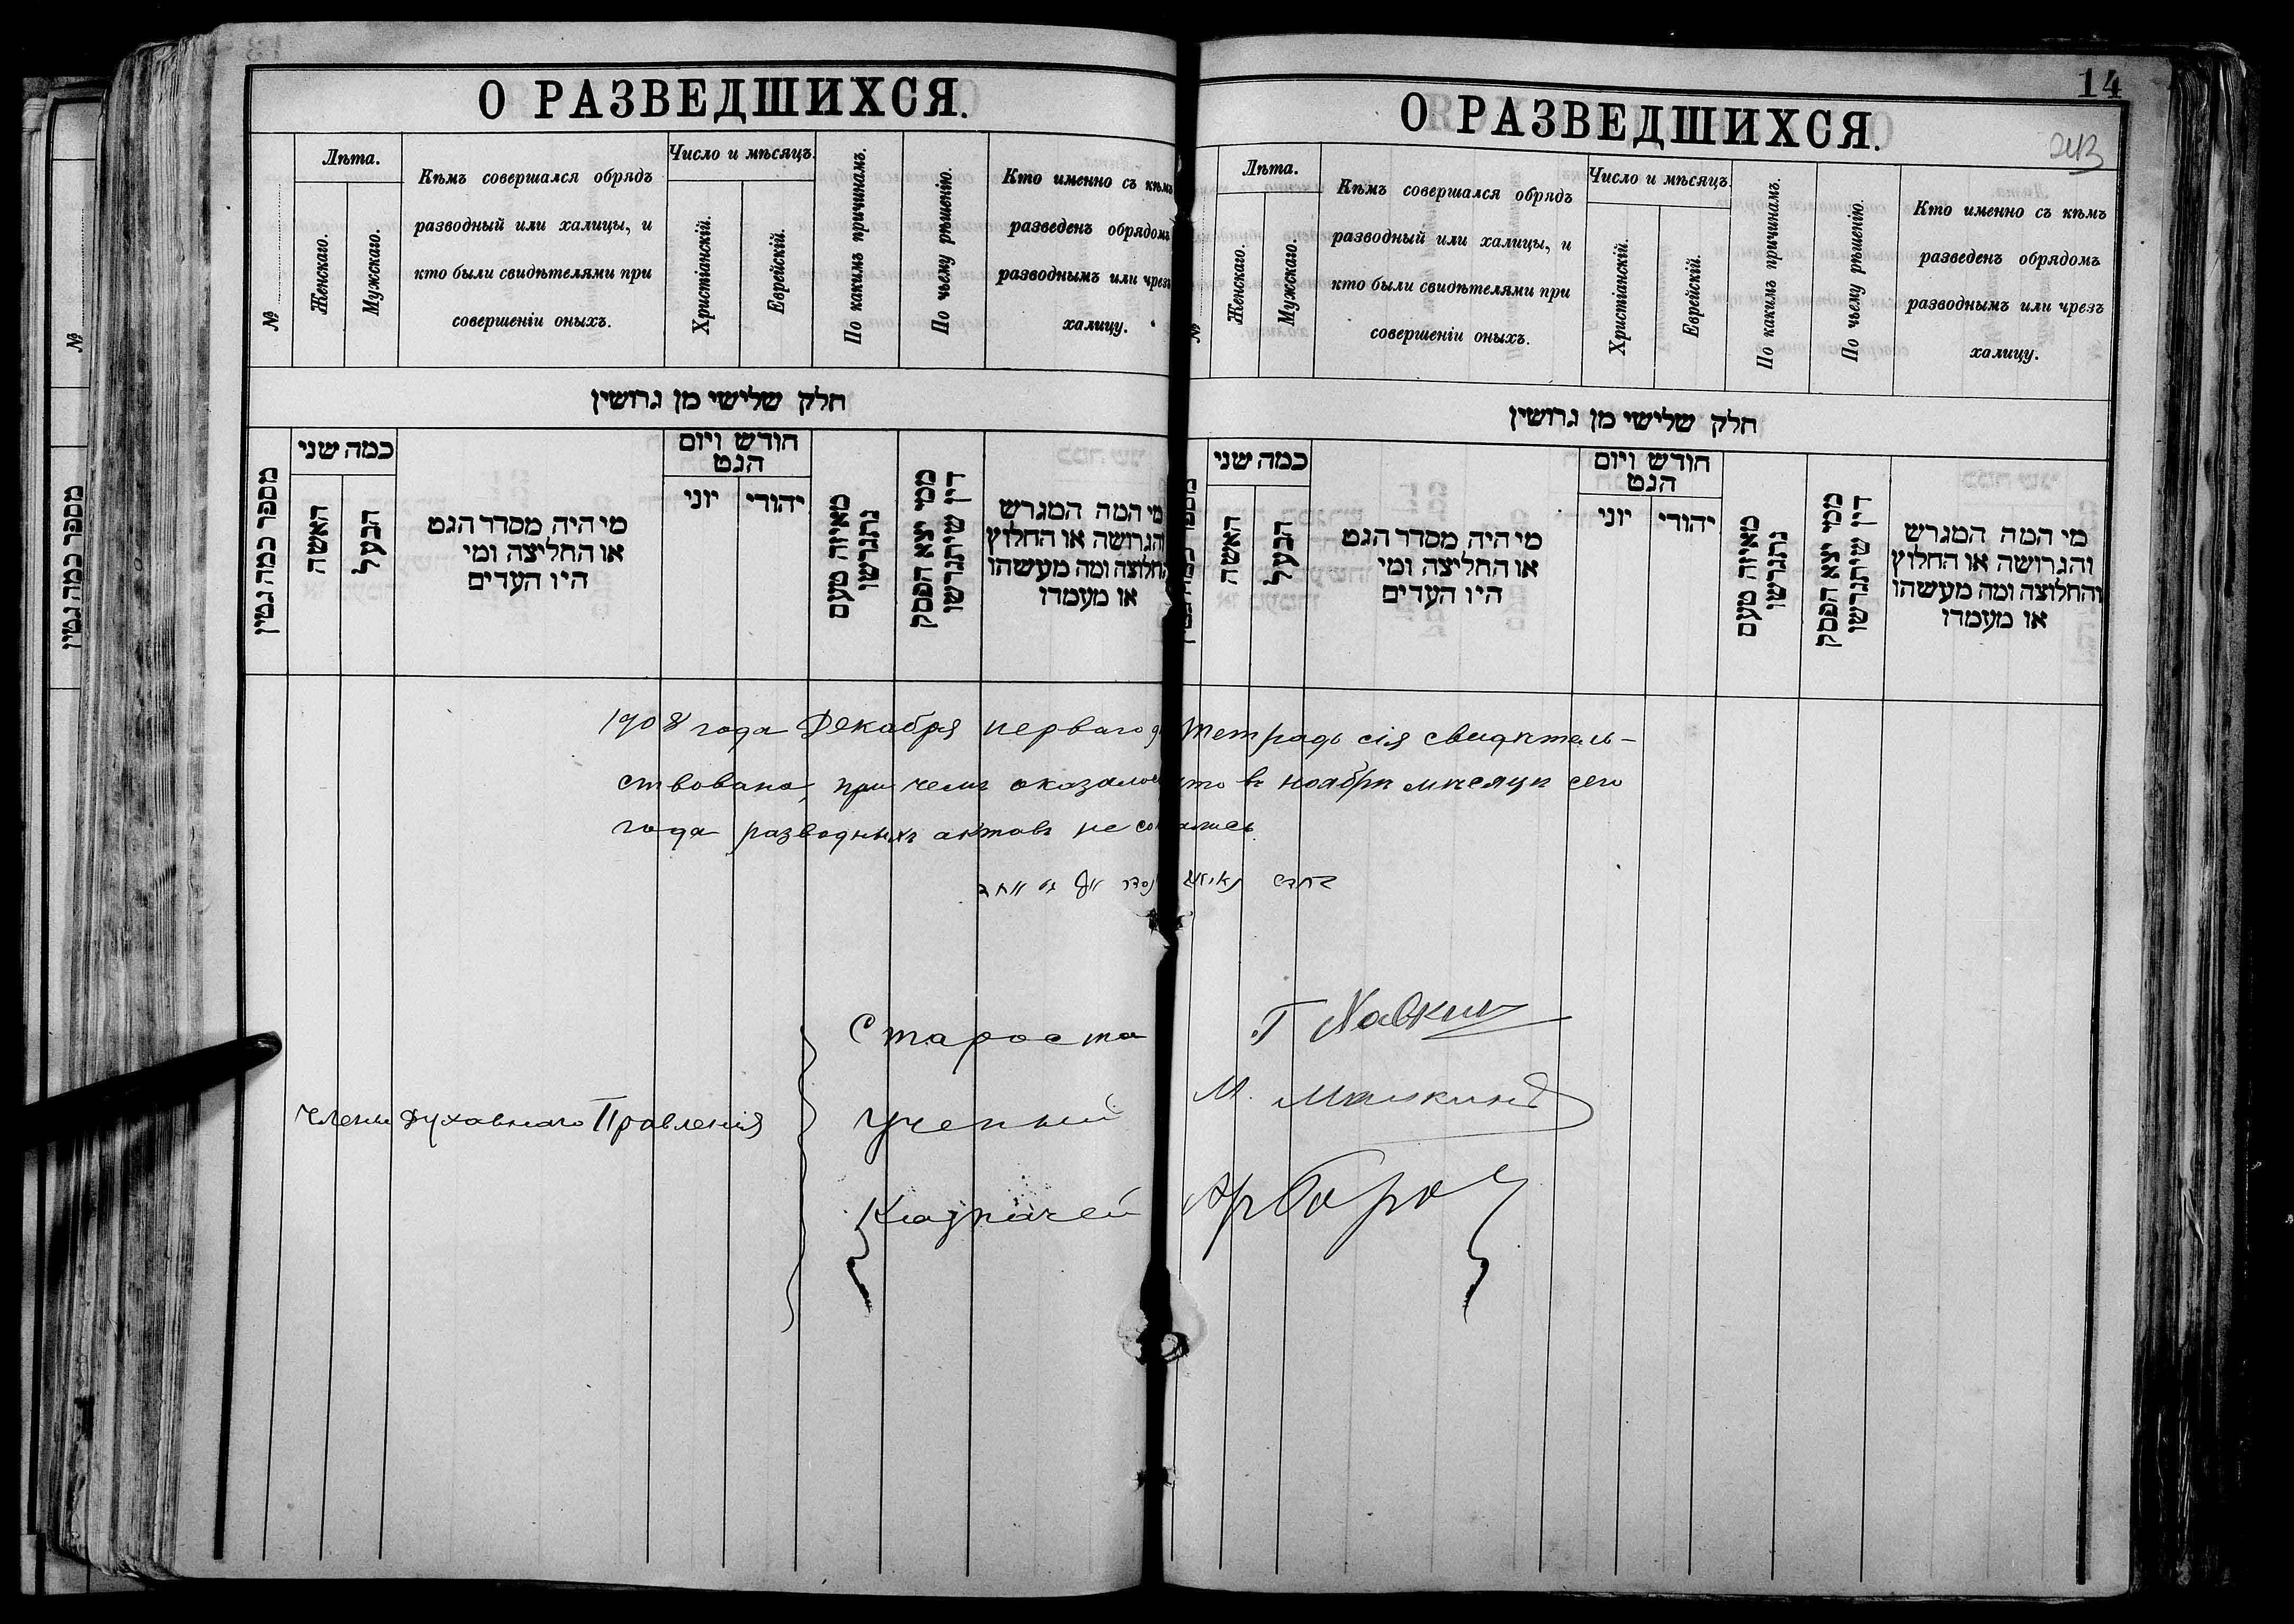 О РАЗВЕДШИХСЯ.
№
Лѣта.
Женскаго.
Мужскаго.
Кѣмъ совершался обрядъ
разводный или халицы, и
кто были свидѣтелями при
совершеніи оныхъ.
Число и мѣсяцъ.
Христіанскій.
Еврейскій.
По какимъ причинамъ.
По чьему рѣшенію.
Кто именно съ кѣмъ
разведенъ обрядомъ
разводнымъ или чрезъ
халицу.
חלק שלישי מן גרושין
מספר כמה גטין
כמה שני
האשה
הבעל
מי היה מסדר הגט
או החליצה ומי
היו העדים
חודש ויום
הגט
יוני
יהודי
מאיזה טעם
נתגרשו
ממי יצא הפסק
דין שיתגרשו
מי המה המגרש
והגרושה או החלוץ
והחלוצה ומה מעשהו
או מעמדו
14
243
О РАЗВЕДШИХСЯ.
№
Лѣта.
Женскаго.
Мужскаго.
Кѣмъ совершался обрядъ
разводный или халицы, и
кто были свидѣтелями при
совершеніи оныхъ.
Число и мѣсяцъ.
Христіанскій.
Еврейскій.
По какимъ причинамъ.
По чьему рѣшенію.
Кто именно съ кѣмъ
разведенъ обрядомъ
разводнымъ или чрезъ
халицу.
חלק שלישי מן גרושין
כמה שני
האשה
הבעל
מי היה מסדר הגט
או החליצה ומי
היו העדים
חודש ויום
הגט
יוני
יהודי
מאיזה טעם
נתגרשו
ממי יצא הפסק
דין שיתגרשו
מי המה המגרש
והגרושה או החלוץ
והחלוצה ומה מעשהו
או מעמדו
1908 года Декабря перваго Тетрадь сія свидѣтель-
ствована, при чемъ оказалось что въ ноябрѣ мѣсяцѣ сего
года разводныхъ актовъ не
Староста Г Хавкин
Члены Духовнаго Правленія
Ученый М.
Казначей
№
מספר כמה גטין